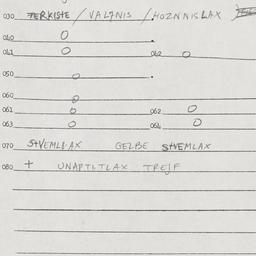 030 TERKISTE / VALANIS / HOZNNISLAX
040 O
041 O 042 O
050 O
060 O
061 O 062 O
063 O 064 O
070 STVEMLAX GELBE STVEMLAX
080 + UNAPTLTLAX TREJF